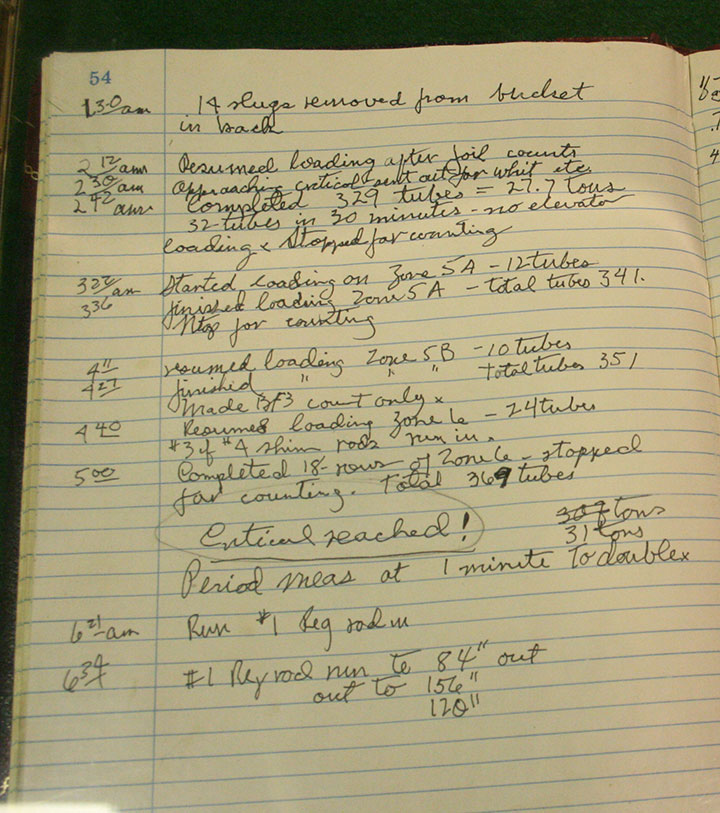 54
1 30 am 14 slugs removed from bucket
in back
2 12 am Resumed loading after foil counts
2 30 am Approaching critical sent out for Whit etc
2 42 am Completed 329 tubes = 27.7 tons
32 tubes in 30 minutes - no elevator
loading x Stopped for counting
3 22 am Started loading on Zone 5A - 12 tubes
3 36 finished loading Zone 5A - total tubes 341.
Stop for counting
4 11 resumed loading Zone 5B - 10 tubes
4 27 finished " " " Total tubes 351
Made BF3 count only x
4 40 Resumed loading Zone 6 - 24 tubes
#3 & #4 shim rods run in.
5 00 Completed 18 rows of Zone 6 - stopped
for counting. Total 369 tubes
Critical reached! 30 tons
31 tons
Period meas at 1 minute to double x
6 21 am Run #1 Reg rod in
6 34 #1 Reg rod run to 84" out
out to 156"
120"